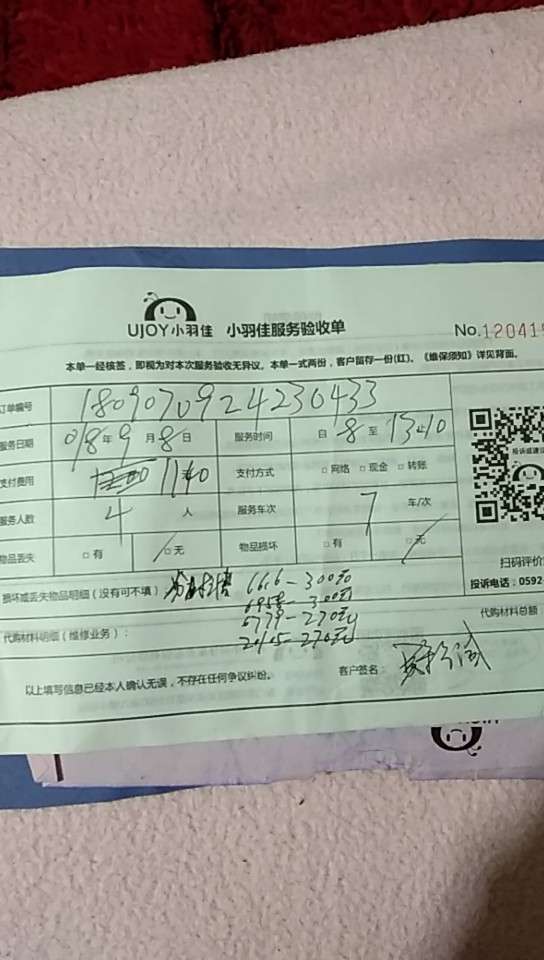 UJOY小羽佳 小羽佳服务验收单
No.120415
本单一经核签，即视为对本次服务验收无异议。本单一式两份，客户留存一份(红)。《维保须知》详见背面。
订单编号 1809070924230433
服务日期 018年9月8日 服务时间 自8至13:40
支付费用 1140 支付方式 □网络 □现金 □转账
服务人数 4人 服务车次 7 车/次
物品丢失 □有 □无 物品损坏 □有 □无
投诉或建议
扫码评价
投诉电话：0592-
损坏或丢失物品明细（没有可不填） 6616-300元
6958-300元
代购材料明细（维修业务）： 6779-270元
2415-270元
代购材料总额
以上填写信息已经本人确认无误，不存在任何争议纠纷。 客户签名：